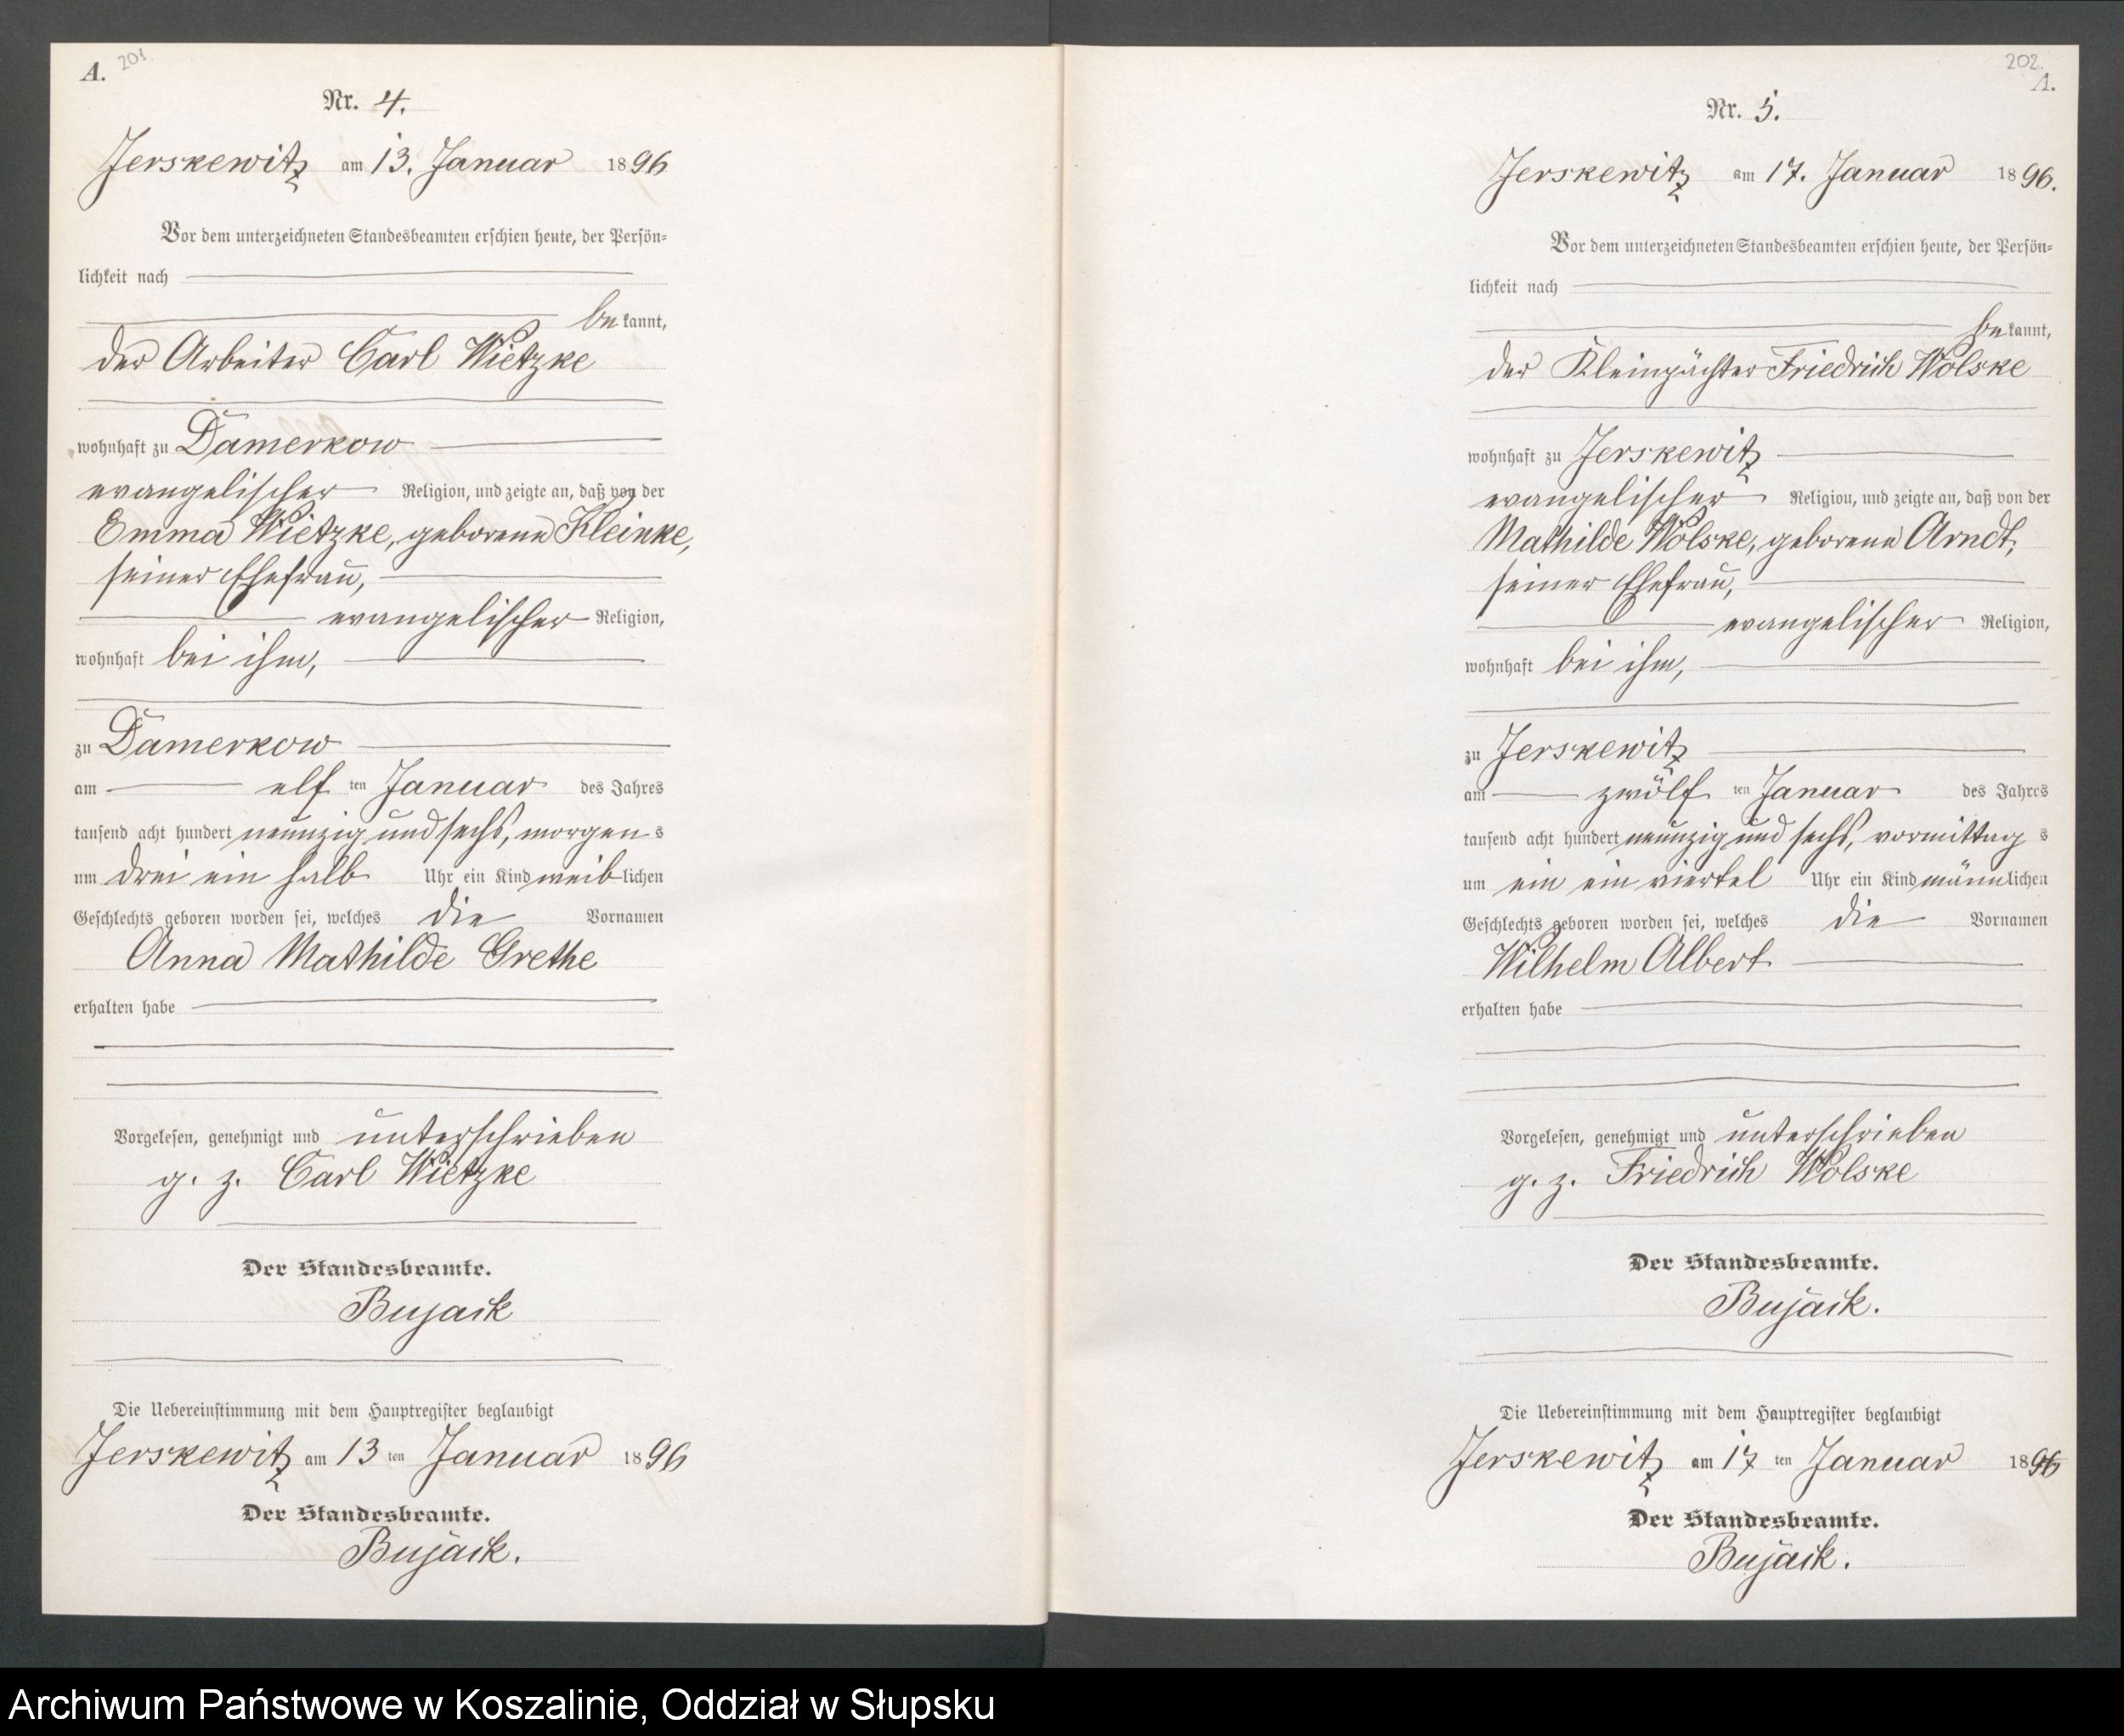 A. 201.
Nr. 4.
Jerskewitz am 13. Januar 1896
Vor dem unterzeichneten Standesbeamten erschien heute, der Persön-
lichkeit nach
be kannt,
der Arbeiter Carl Wietzke
wohnhaft zu Damerkow
evangelischer Religion, und zeigte an, daß von der
Emma Wietzke, geborene Kleinke,
seiner Ehefrau,
evangelischer Religion,
wohnhaft bei ihm,
zu Damerkow
am elf ten Januar des Jahres
tausend acht hundert neunzig und sechs, morgen s
um drei ein halb Uhr ein Kind weib lichen
Geschlechts geboren worden sei, welches die Vornamen
Anna Mathilde Grethe
erhalten habe
Vorgelesen, genehmigt und unterschrieben
g. z. Carl Wietzke
Der Standesbeamte.
Bujack
Die Uebereinstimmung mit dem Hauptregister beglaubigt
Jerskewitz am 13 ten Januar 1896
Der Standesbeamte.
Bujack.
202.
A.
Nr. 5.
Jerskewitz am 17. Januar 1896.
Vor dem unterzeichneten Standesbeamten erschien heute, der Persön-
lichkeit nach
be kannt,
der Kleinpächter Friedrich Wolske
wohnhaft zu Jerskewitz
evangelischer Religion, und zeigte an, daß von der
Mathilde Wolske, geborene Arndt,
seiner Ehefrau,
evangelischer Religion,
wohnhaft bei ihm,
zu Jerskewitz
am zwölf ten Januar des Jahres
tausend acht hundert neunzig und sechs, vormittag s
um ein ein viertel Uhr ein Kind männ lichen
Geschlechts geboren worden sei, welches die Vornamen
Wilhelm Albert
erhalten habe
Vorgelesen, genehmigt und unterschrieben
g. z. Friedrich Wolske
Der Standesbeamte.
Bujack.
Die Uebereinstimmung mit dem Hauptregister beglaubigt
Jerskewitz am 17 ten Januar 1896
Der Standesbeamte.
Bujack.
Archiwum Państwowe w Koszalinie, Oddział w Słupsku